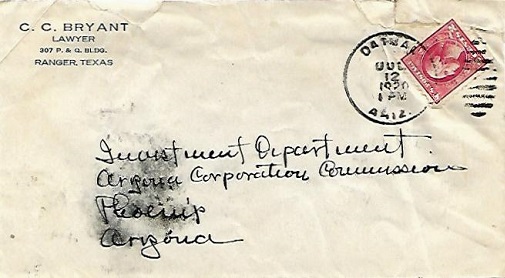 C. C. BRYANT
LAWYER
307 P. & Q. BLDG.
RANGER, TEXAS
OATMAN
JUL
12
1920
1 PM
ARIZ.
Investment Department
Arizona Corporation Commission
Phoenix
Arizona